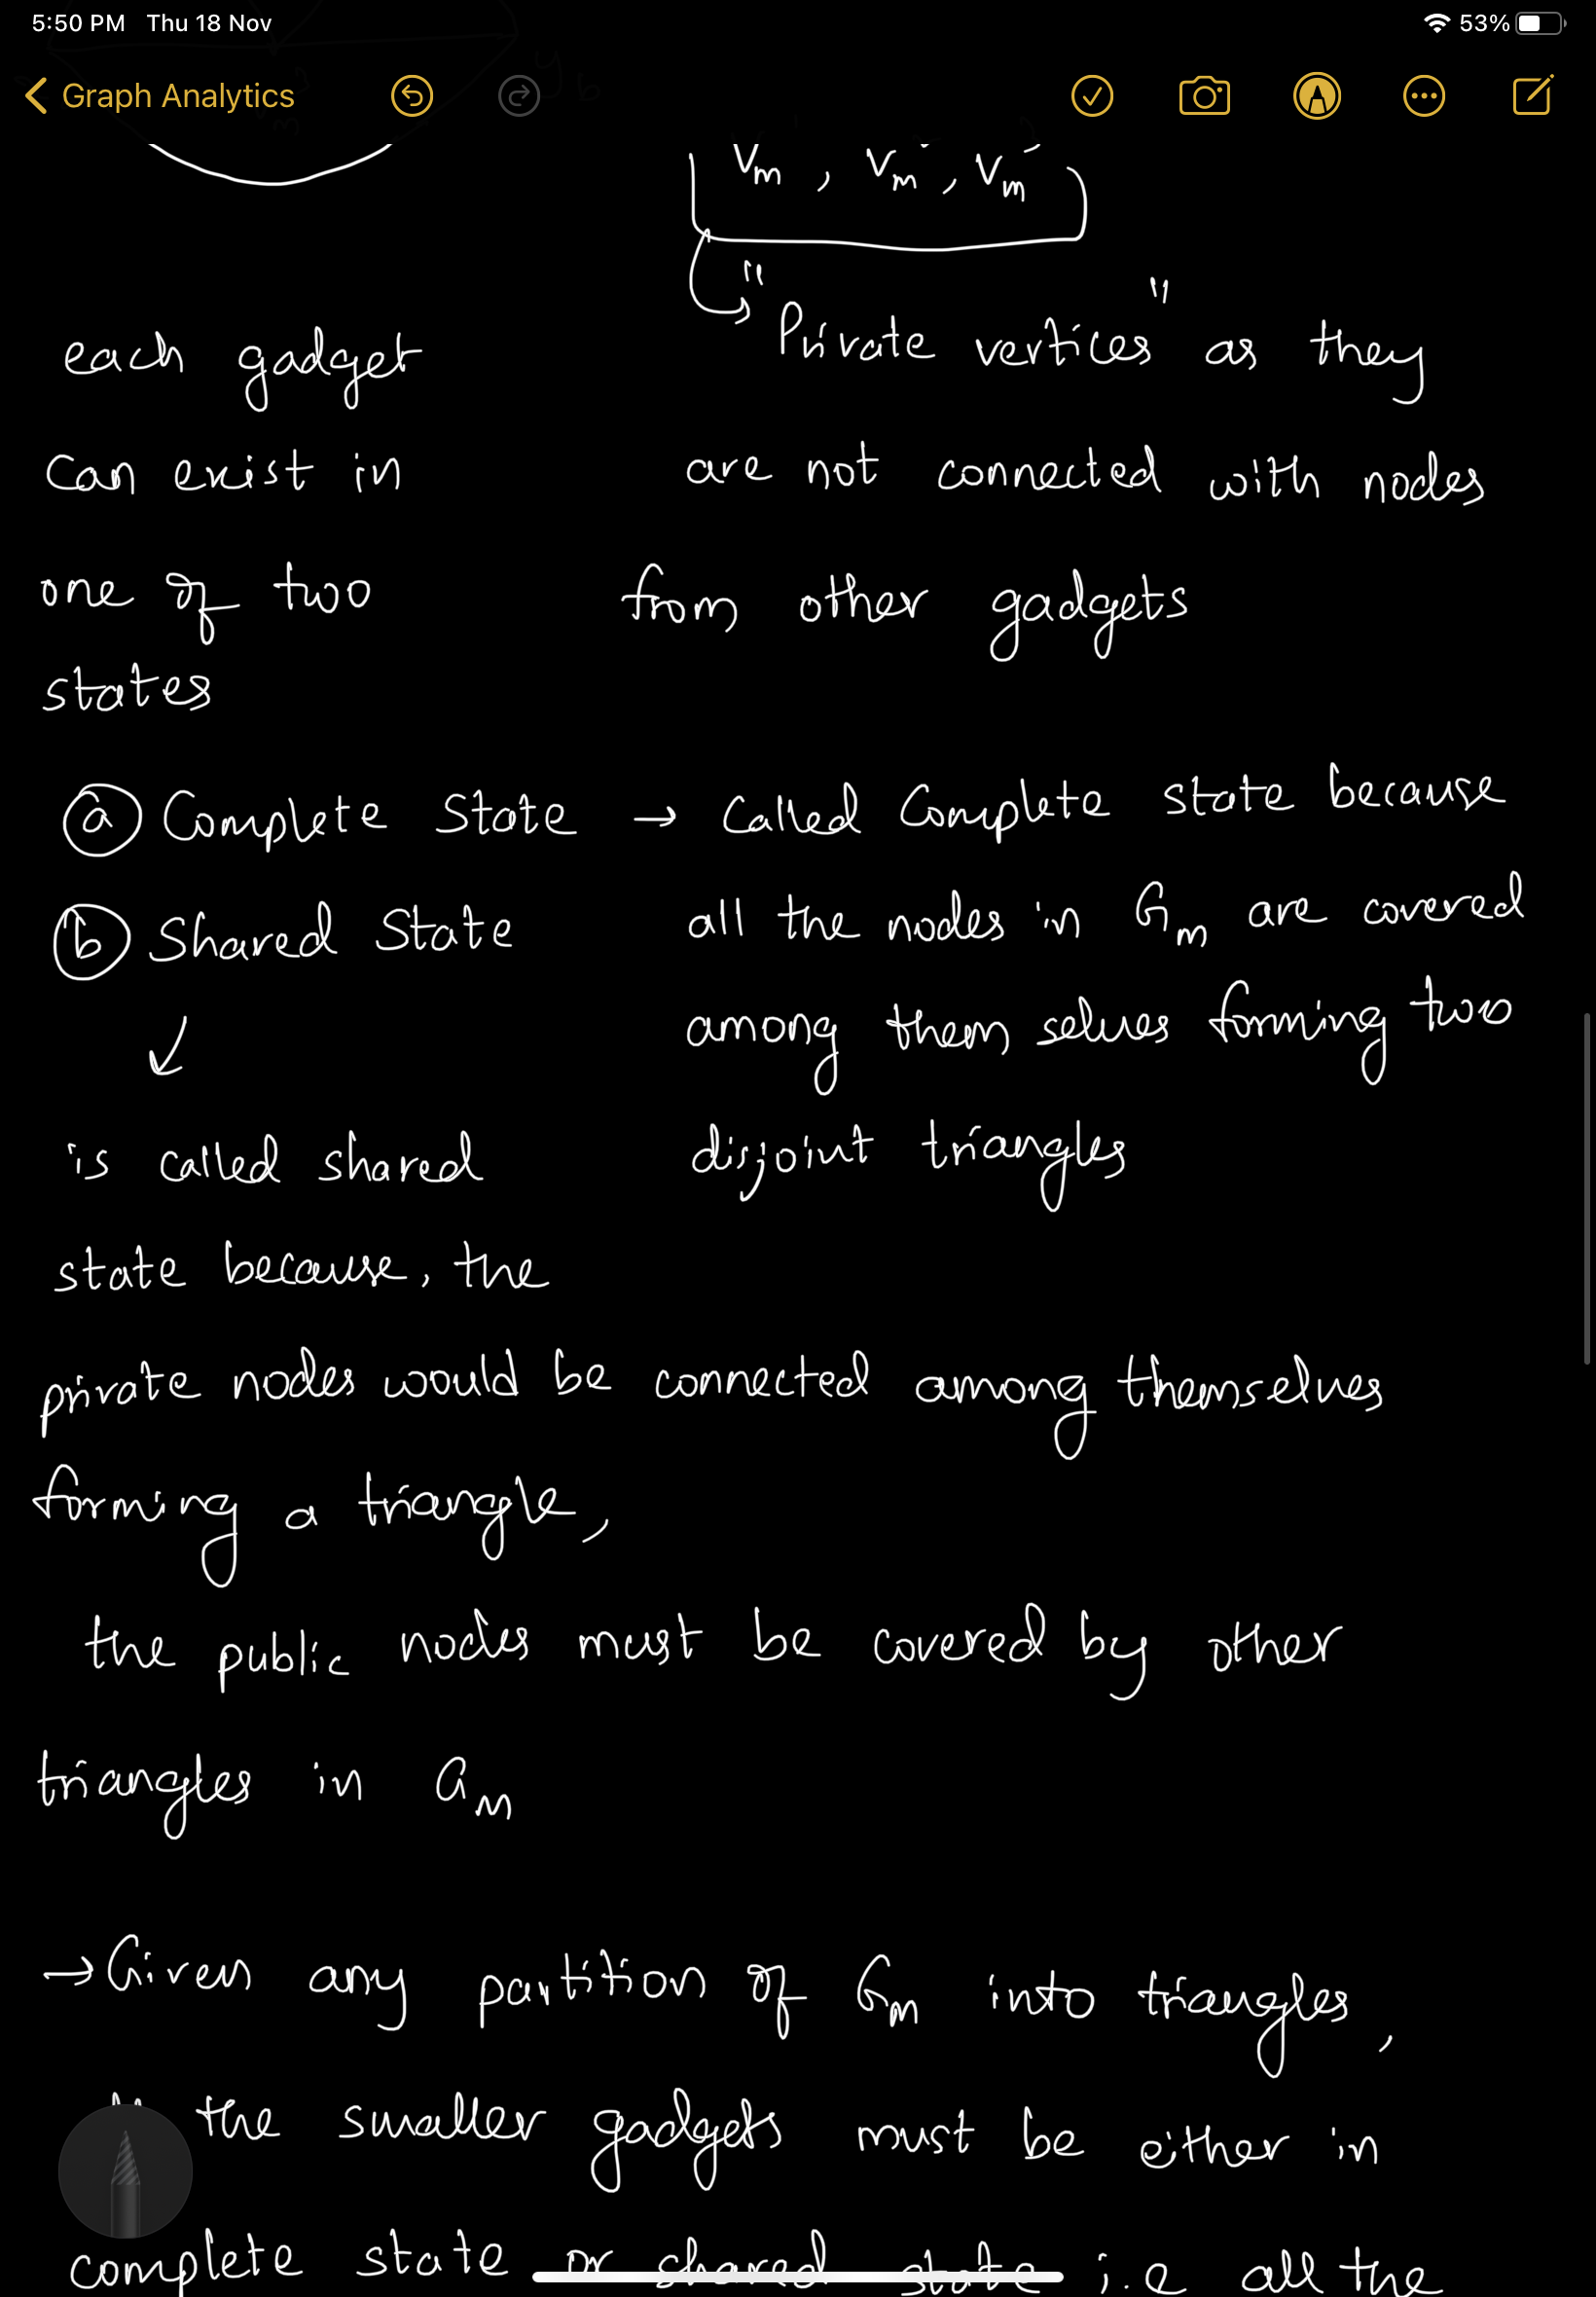 5:50 PM Thu 18 Nov
53%
Graph Analytics
Vm , Vm , Vm
"Private vertices" as they
are not connected with nodes
from other gadgets
each gadget
Can exist in
one of two
states
(a) Complete State → Called Complete state because
all the nodes in Gm are covered
among them selves forming two
disjoint triangles
(b) Shared State
↙
is called shared
state because, the
private nodes would be connected among themselves
forming a triangle,
the public nodes must be covered by other
triangles in GM
→ Given any partition of Gm into triangles,
the smaller gadgets must be either in
complete state or shared state i.e all the